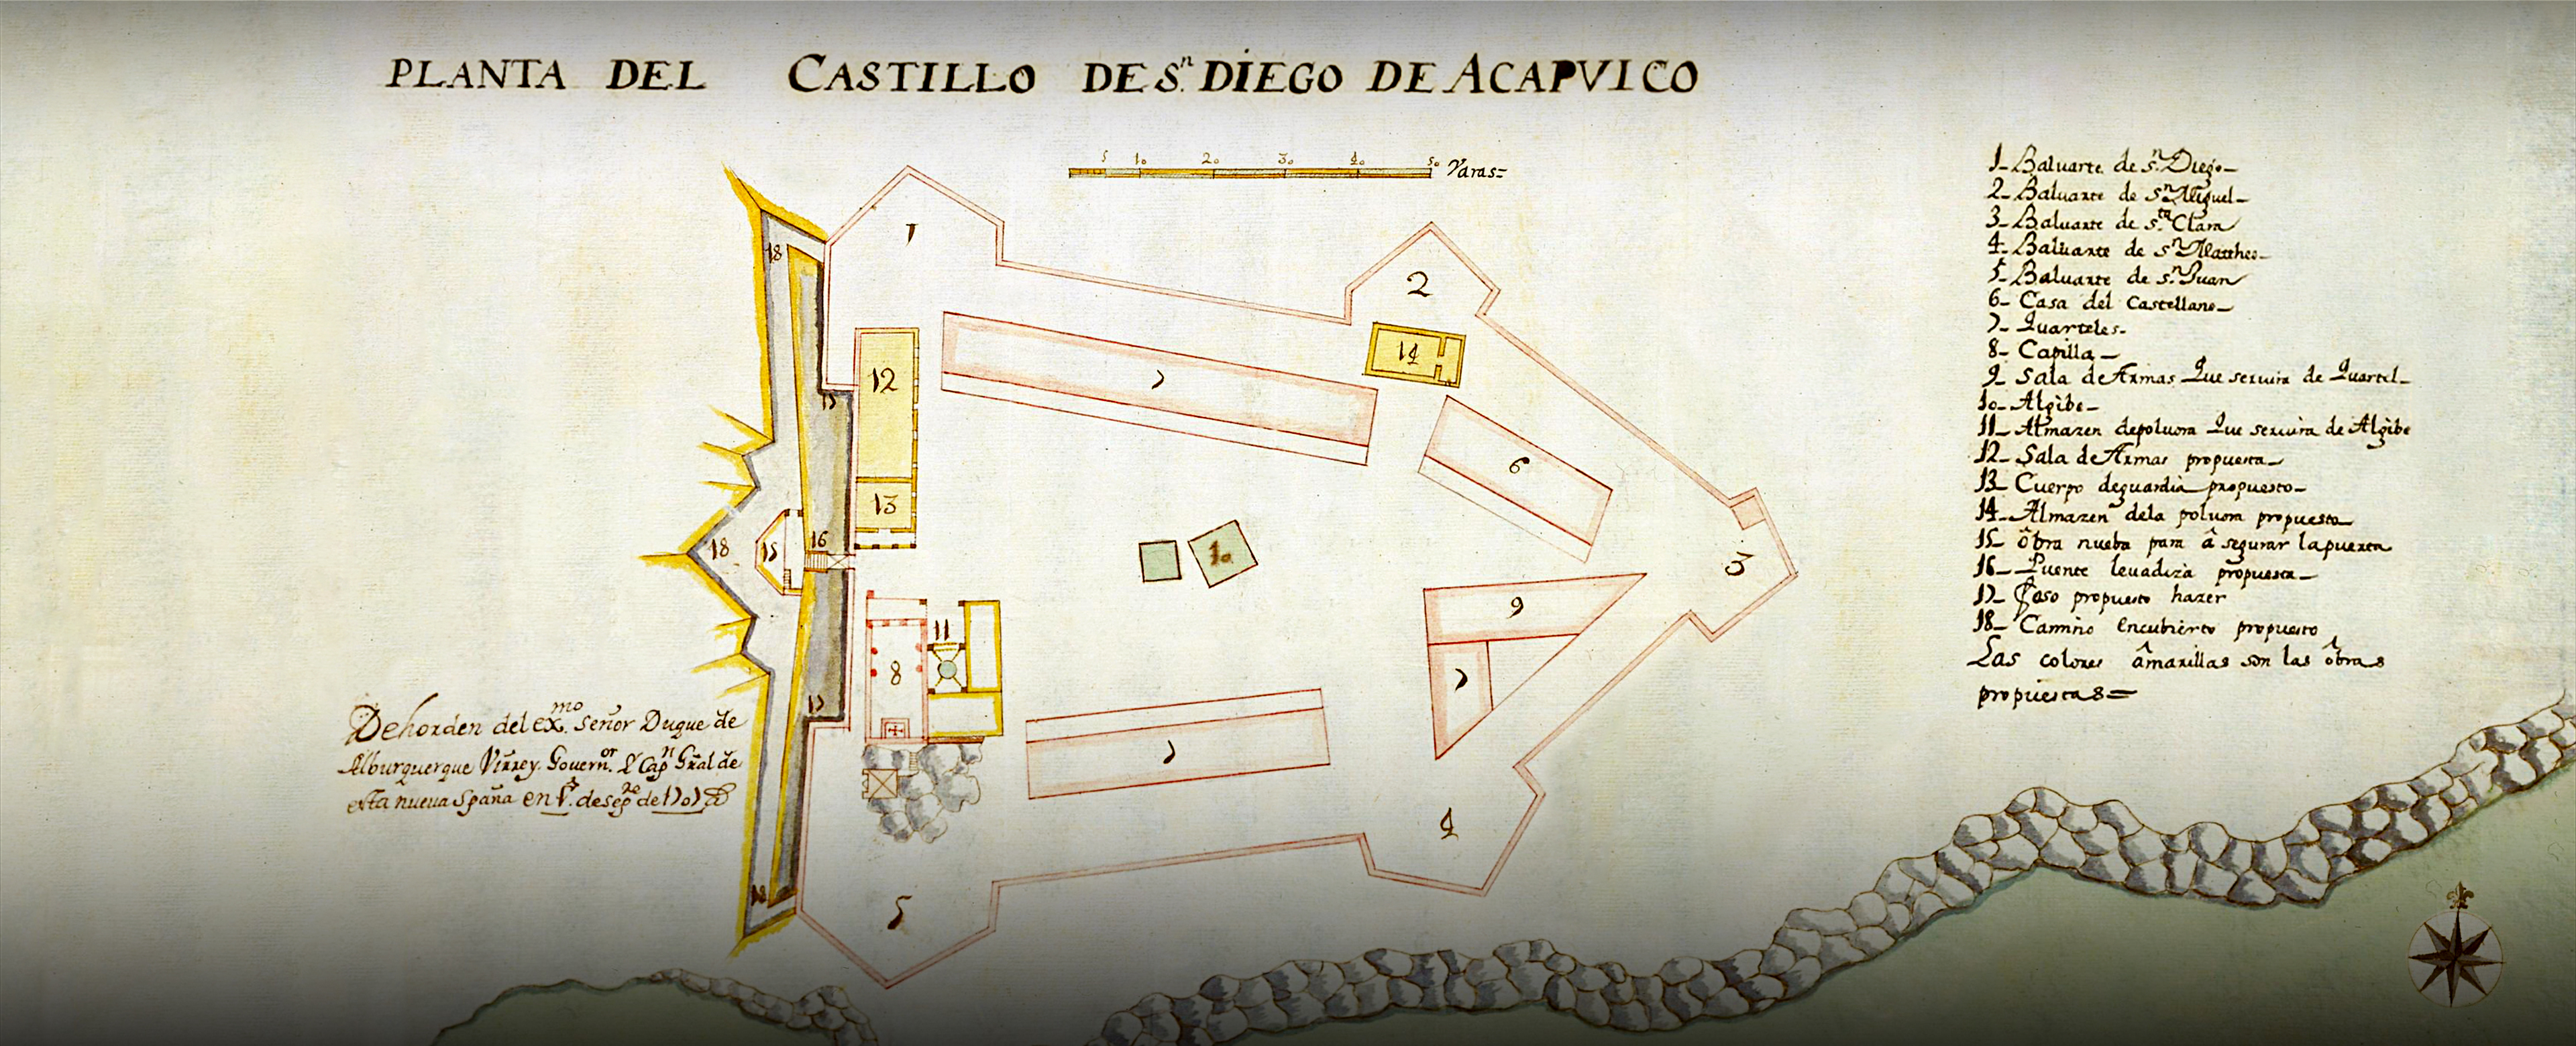 PLANTA DEL CASTILLO DE Sn. DIEGO DE ACAPVLCO
5 10 20 30 40 50 Varas=
1- Baluarte de Sn. Diego-
2- Baluarte de Sn. Miguel-
3- Baluarte de Sta. Clara
4- Baluarte de Sn. Mattheo-
5- Baluarte de Sn. Juan
6- Casa del Castellano-
7- Quarteles-
8- Capilla-
9- Sala de Armas Que seruira de Quartel-
10- Algibe-
11- Almazen depoluora Que seruira de Algibe
12- Sala de Armas propuesta-
13- Cuerpo deguardia propuesto-
14- Almazen dela poluora propuesta
15- obra nueba para âsegurar lapuerta
16- Puente leuadiza propuesta-
17- Foso propuesto hazer
18- Camino encubierto propuesto
Las colores âmarillas son las ôbras
propuestas=
1
2
18
12
14
7
17
6
13
10
18
15
16
3
9
11
8
7
17
7
4
18
5
Dehorden del exmo. señor Duque de
Alburquerque Virrey. Governor. Y Capn Gral de
esta nueua España en de sepre de 1707